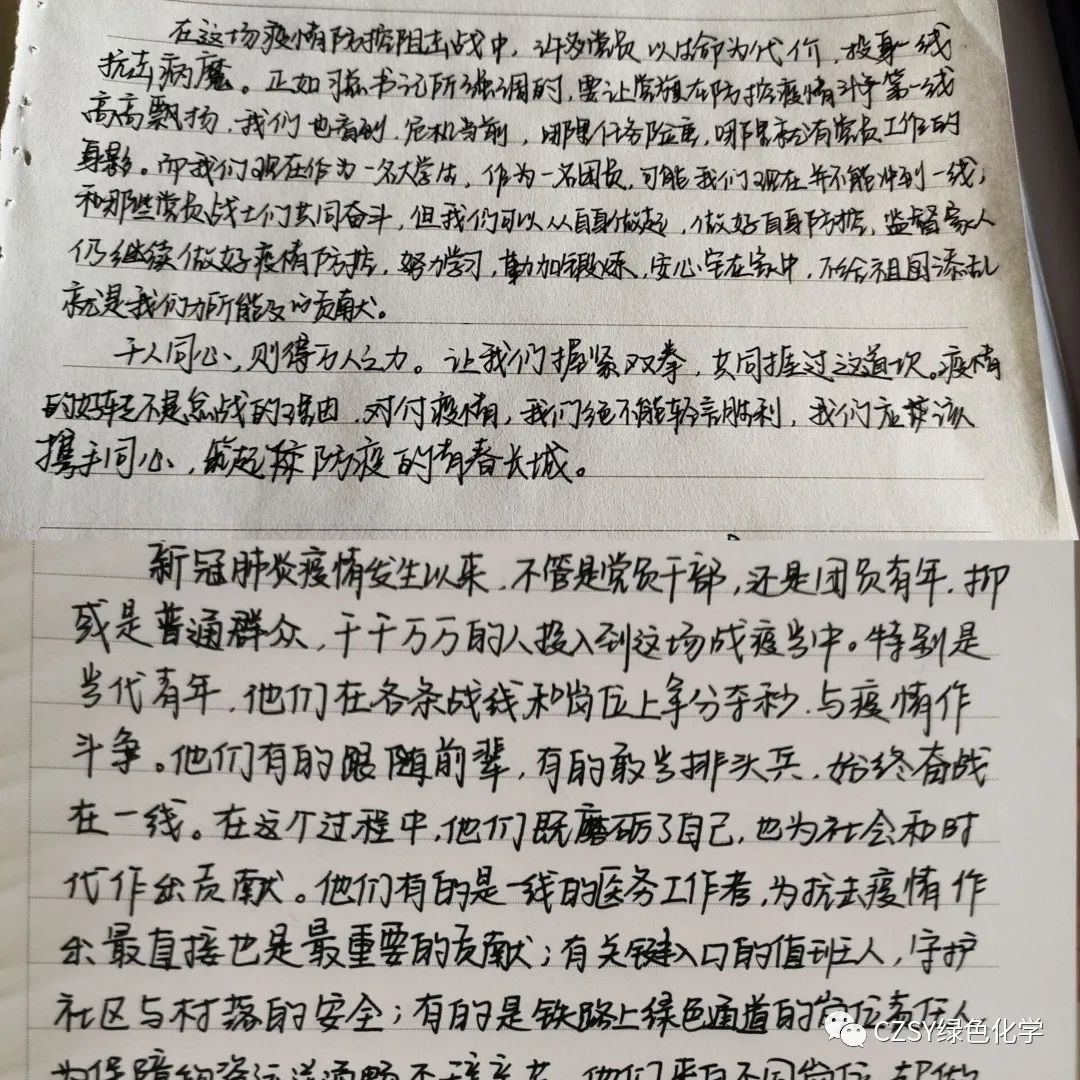 在这场疫情防控阻击战中，许多党员以生命为代价，投身一线
抗击病魔。正如习总书记所强调的，要让党旗在防控疫情斗争第一线
高高飘扬，我们也看到，危机当前，哪里任务险重，哪里就有党员工作的
身影。而我们现在作为一名大学生，作为一名团员，可能我们现在并不能冲到一线，
和那些党员战士们共同奋斗，但我们可以从自身做起，做好自身防控，监督家人
仍继续做好疫情防控，努力学习，勤加锻炼，安心宅在家中，不给祖国添乱
就是我们力所能及的贡献。
千人同心，则得万人之力。让我们握紧双拳，共同挺过这道坎。疫情
的好转不是怠战的理因，对付疫情，我们绝不能轻言胜利，我们应该
携手同心，筑起防疫的青春长城。
新冠肺炎疫情发生以来，不管是党员干部，还是团员青年，抑
或是普通群众，千千万万的人投入到这场战疫当中。特别是
当代青年，他们在各条战线和岗位上争分夺秒，与疫情作
斗争。他们有的跟随前辈，有的敢当排头兵，始终奋战
在一线。在这个过程中，他们既磨砺了自己，也为社会和时
代作出贡献。他们有的是一线的医务工作者，为抗击疫情作
出最直接也是最重要的贡献；有关键入口的值班人，守护
社区与村落的安全；有的是铁路上绿色通道的岗位责任人
为保障物资运送通畅不辞辛苦。他们来自不同岗位，却做
CZSY绿色化学